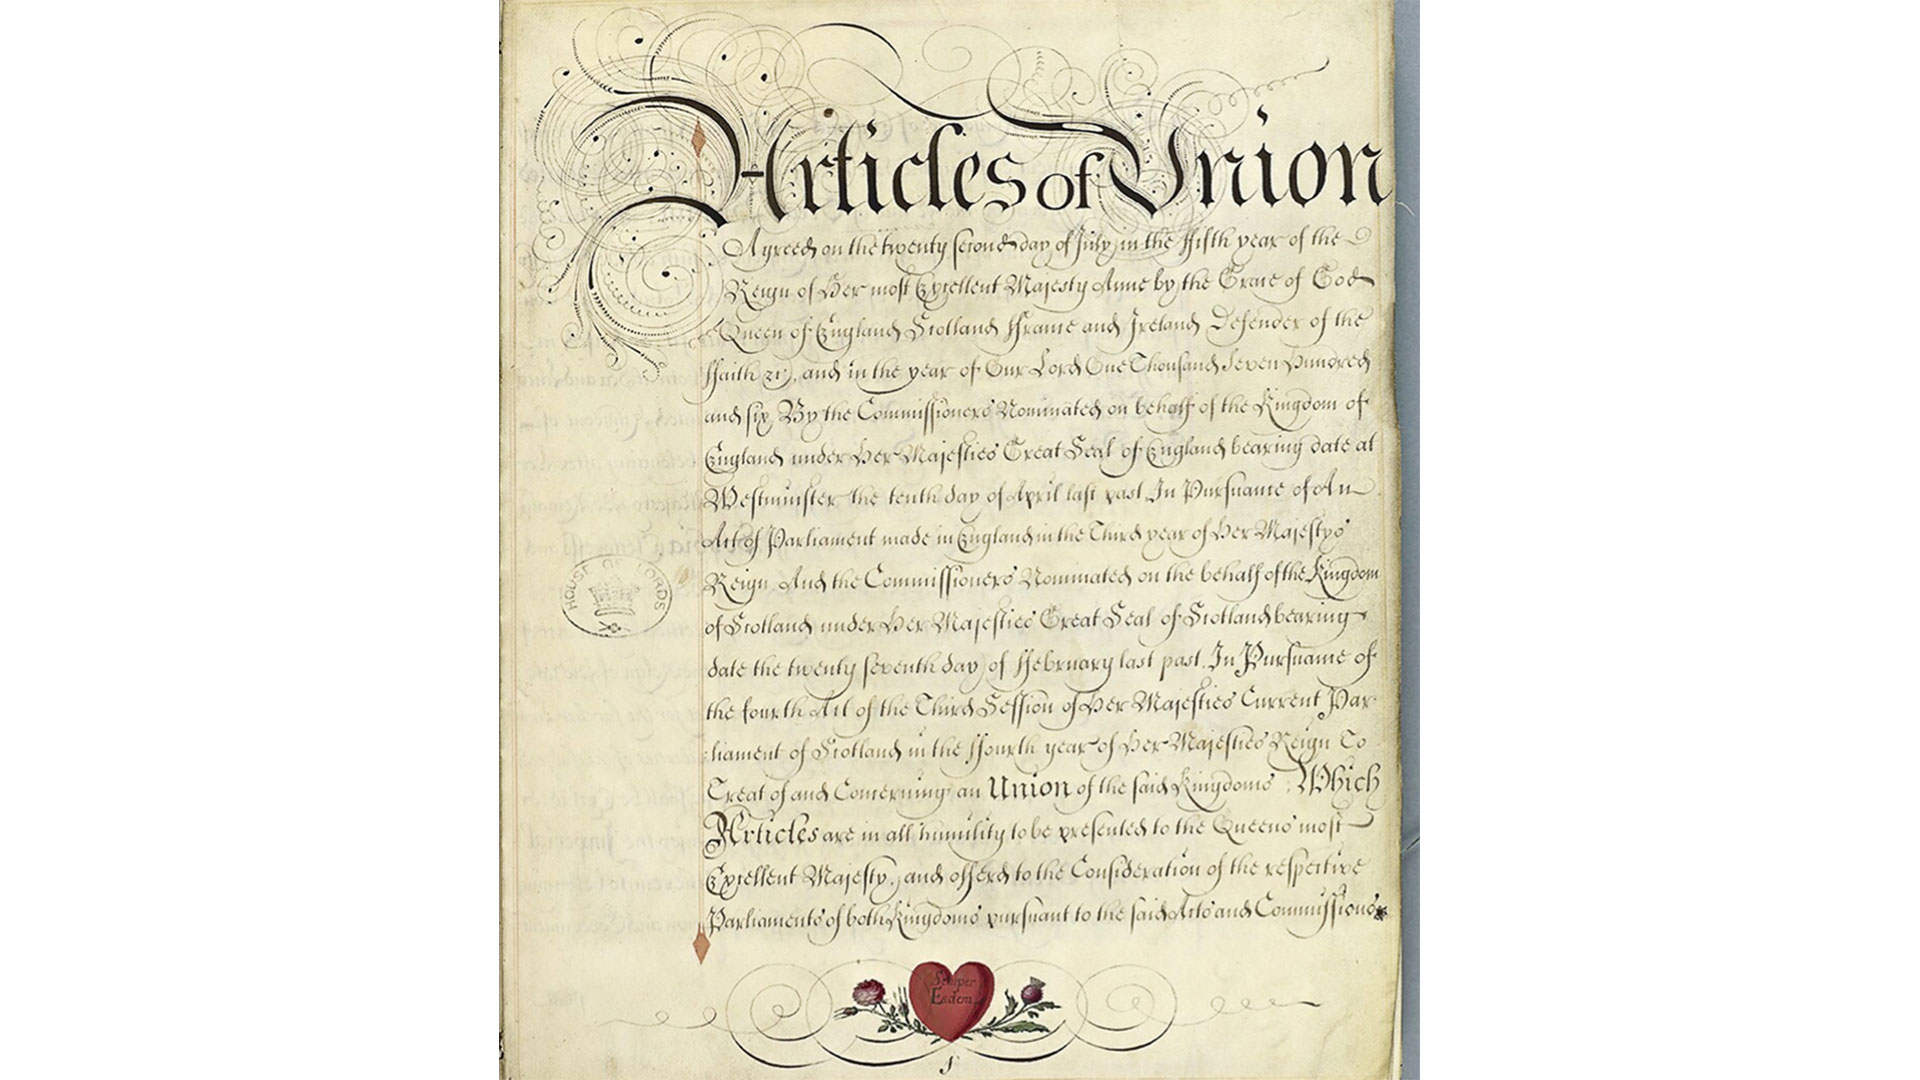 Articles of Union
Agreed on the twenty second day of July, in the ffifth year of the
Reign of Her most Excellent Majesty Anne by the Grace of God
Queen of England Scotland ffrance and Ireland Defender of the
ffaith &c, and in the year of Our Lord One Thousand Seven Hundred
and six, By the Commissioners Nominated on behalf of the Kingdom of
England under Her Majesties Great Seal of England bearing date at
Westminster the tenth day of April last past In Pursuance of An
Act of Parliament made in England in the Third year of Her Majestys
Reign. And the Commissioners Nominated on the behalf of the Kingdom
of Scotland under Her Majesties Great Seal of Scotland bearing
date the twenty seventh day of ffebruary last past. In Pursuance of
the fourth Act of the Third Session of Her Majesties Current Par
liament of Scotland in the ffourth year of Her Majesties Reign To
Treat of and Concerning an Union of the said Kingdoms Which
Articles are in all humility to be presented to the Queens most
Excellent Majesty, and offerd to the Consideration of the respective
Parliaments of both Kingdoms pursuant to the said Acts and Commissions
HOUSE OF LORDS
Semper
Eadem